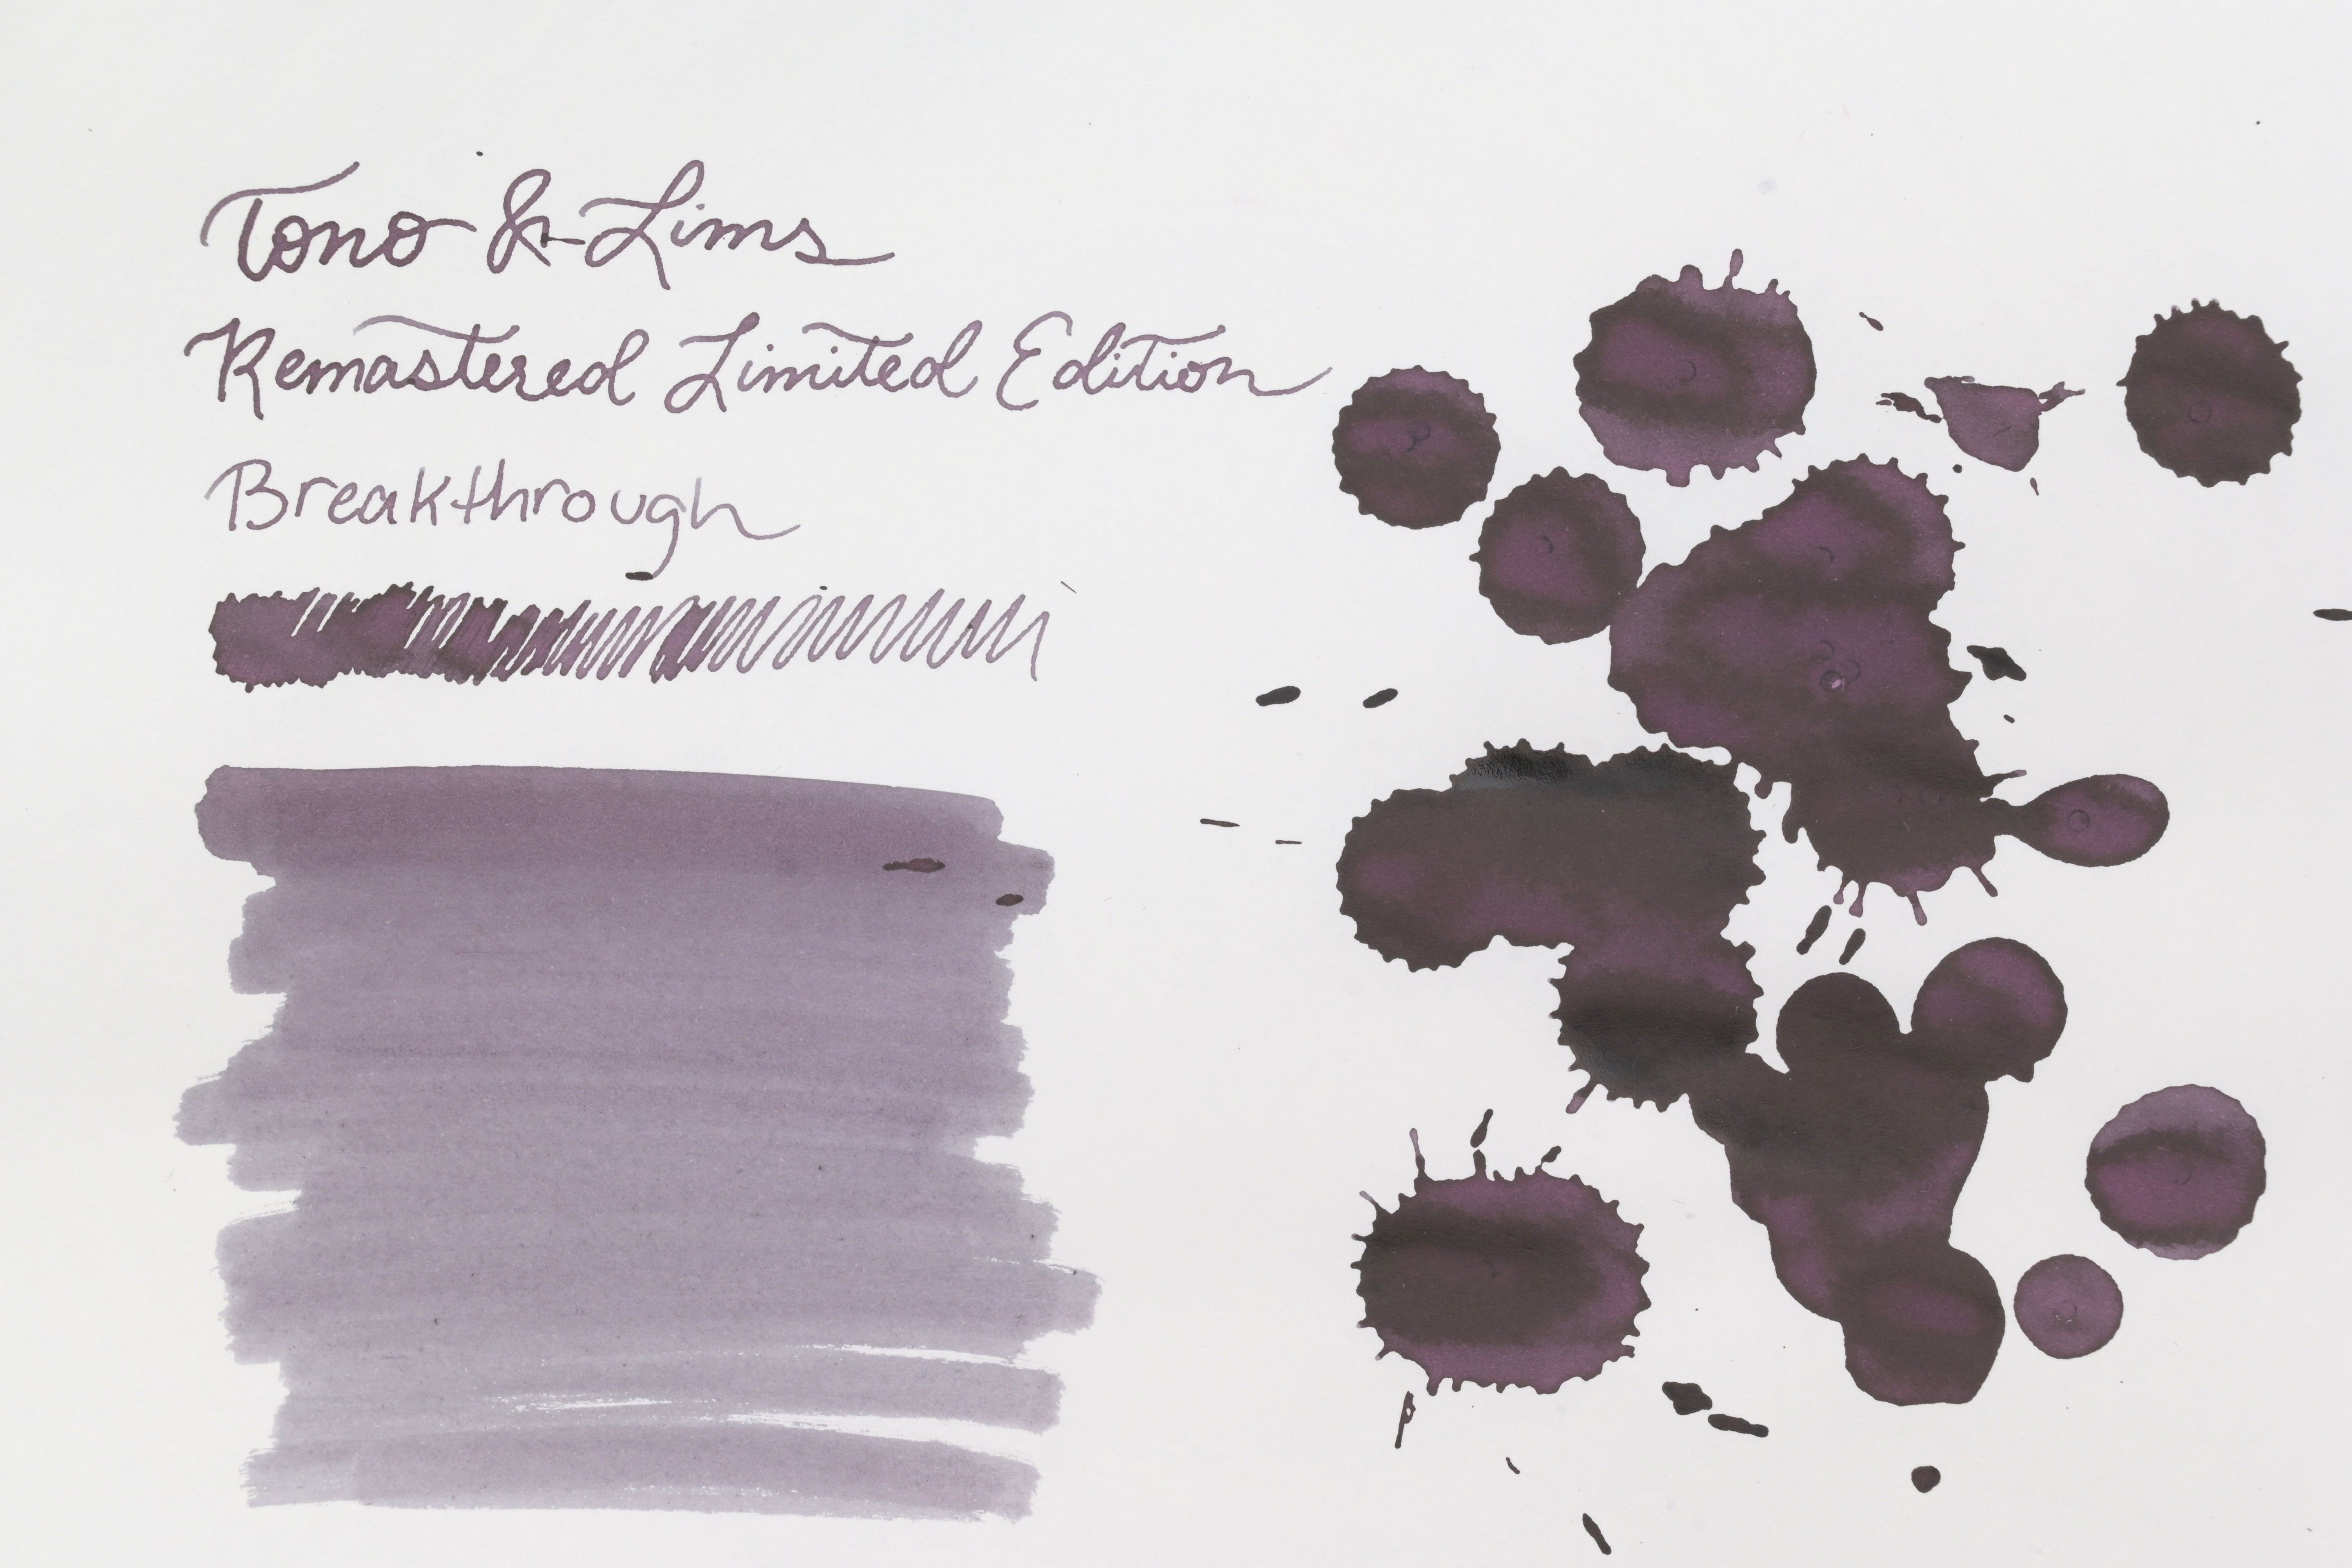 Tono & Lims
Remastered Limited Edition
Breakthrough